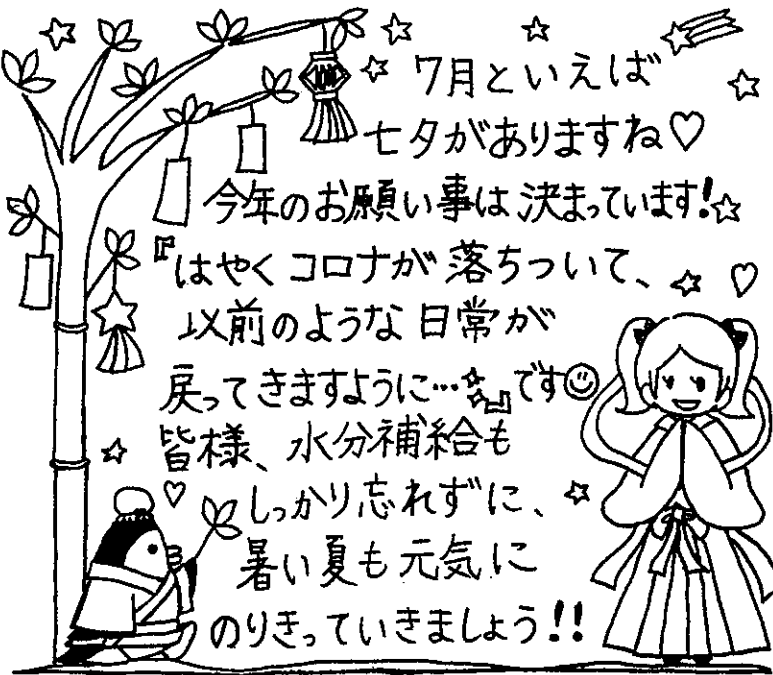 7月といえば
七夕がありますね♡
今年のお願い事は決まっています!☆
『はやくコロナが落ちついて、
以前のような日常が
戻ってきますように…☆』です☺
皆様、水分補給も
しっかり忘れずに、
暑い夏も元気に
のりきっていきましょう!!